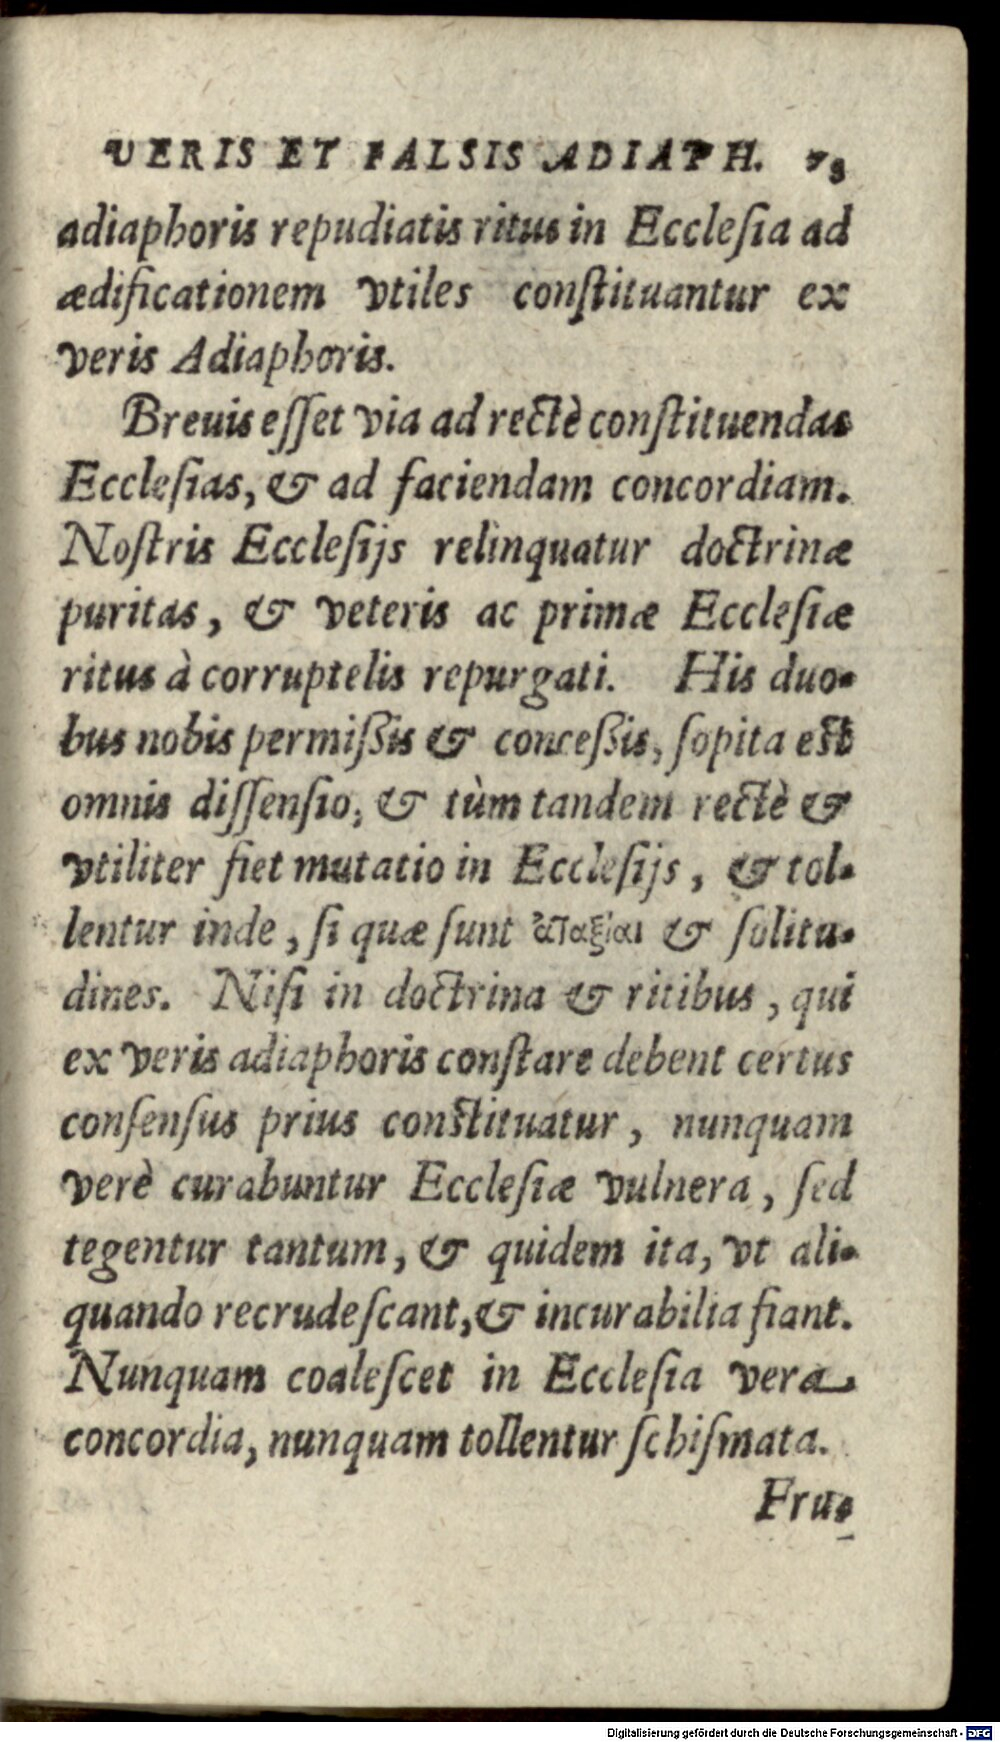 VERIS ET FALSIS ADIAPH. 73
adiaphoris repudiatis ritus in Ecclesia ad
ædificationem vtiles conſtituantur ex
veris Adiaphoris.
Breuis eſſet via ad rectè conſtituendas
Eccleſias, & ad faciendam concordiam.
Noſtris Eccleſijs relinquatur doctrinæ
puritas, & veteris ac primæ Eccleſiæ
ritus à corruptelis repurgati. His duo-
bus nobis permiſſis & conceſſis, ſopita eſt
omnis diſſenſio, & tùm tandem rectè &
vtiliter fiet mutatio in Eccleſijs, & tol-
lentur inde, ſi quæ ſunt ἀταξίαι & ſolitu-
dines. Niſi in doctrina & ritibus, qui
ex veris adiaphoris conſtare debent certus
conſenſus prius conſtituatur, nunquam
verè curabuntur Eccleſiæ vulnera, ſed
tegentur tantum, & quidem ita, vt ali-
quando recrudeſcant, & incurabilia fiant.
Nunquam coaleſcet in Eccleſia vera
concordia, nunquam tollentur ſchiſmata.
Fru-
Digitalisierung gefördert durch die Deutsche Forschungsgemeinschaft - DFG